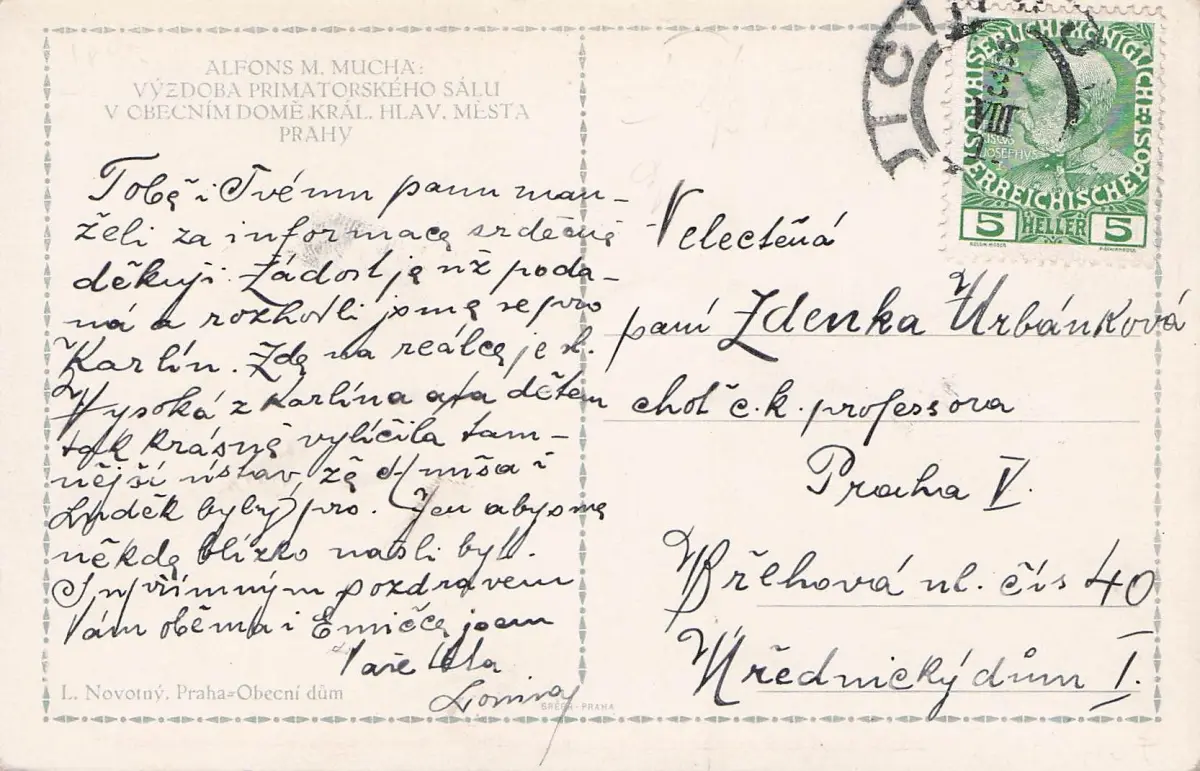 ALFONS M. MUCHA:
VÝZDOBA PRIMATORSKÉHO SÁLU
V OBECNÍM DOMĚ KRÁL. HLAV. MĚSTA
PRAHY
Tobě i Tvému panu man-
želi za informace srdečně
děkuji. Žádost je již poda-
ná a rozhodli jsme se pro
Karlín. Zde na reálce je sl.
Vysoká z Karlína a ta dětem
tak krásně vylíčila tam-
nější ústav, že i
Luděk byl pro. Jen abysme
někde blízko našli byt.
S upřímným pozdravem
Vám oběma i Emičce jsem
Vaše
L. Novotný, Praha=Obecní dům
GRÉGR-PRAHA
KAISERLICHE KÖNIGLICHE
ÖSTERREICHISCHE POST
JOSEPHUS
5 HELLER 5
VIII
Velectěná
paní Zdenka Urbánková
choť c.k. professora
Praha V.
Břehová ul. čís 40
Úřednický dům I.